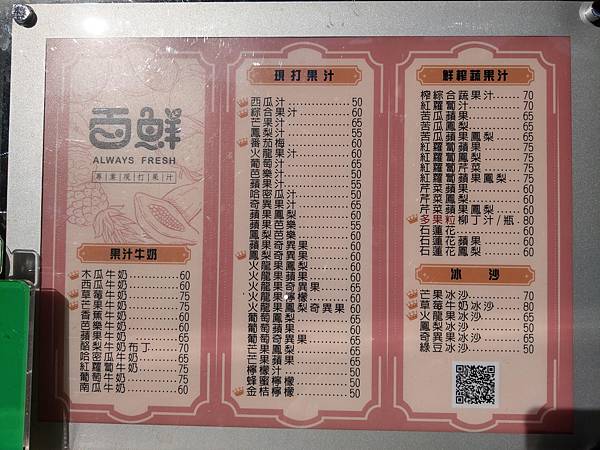 百鮮
ALWAYS FRESH
專業現打果汁
果汁牛奶
木瓜牛奶 60
西瓜牛奶 60
草莓牛奶 75
芒果牛奶 75
香蕉牛奶 60
芭樂牛奶 60
蘋果牛奶 65
酪梨牛奶布丁 70
哈密瓜牛奶 65
紅蘿蔔牛奶 75
葡萄牛奶 75
南瓜牛奶 60
現打果汁
西瓜汁 50
綜合果汁 60
芒果汁 65
鳳梨汁 55
番茄梅 60
火龍果汁 65
葡萄汁 65
芭樂汁 50
蘋果汁 55
哈密瓜汁 55
奇異果汁 65
蘋果鳳梨 60
蘋果芭樂 55
鳳梨芭樂 60
蘋果奇異果 60
鳳梨奇異果 60
火龍果鳳梨 60
火龍果蘋果 60
火龍果奇異果 65
火龍果檸檬 60
火龍果鳳梨奇異果 60
葡萄鳳梨 65
葡萄蘋果 60
葡萄奇異果 65
芒果鳳梨 65
芒果蘋果
檸檬汁 50
蜂蜜檸檬 50
金桔檸檬 50
鮮榨蔬果汁
榨綜合蔬果汁 70
紅蘿蔔汁 70
苦瓜蘋果 65
苦瓜鳳梨 60
苦瓜蘋果鳳梨 65
紅蘿蔔蘋果 75
紅蘿蔔鳳梨 70
紅蘿蔔芹菜 70
紅蘿蔔蘋果鳳梨 75
芹菜蘋果 60
芹菜鳳梨 60
芹菜蘋果鳳梨 60
多果粒柳丁汁/瓶
石蓮花
石蓮花蘋果 65
石蓮花鳳梨 60
冰沙
芒果冰沙 70
草莓牛奶冰沙 80
火龍果冰沙 65
鳳梨冰沙 50
奇異果冰沙 65
綠豆冰沙 50